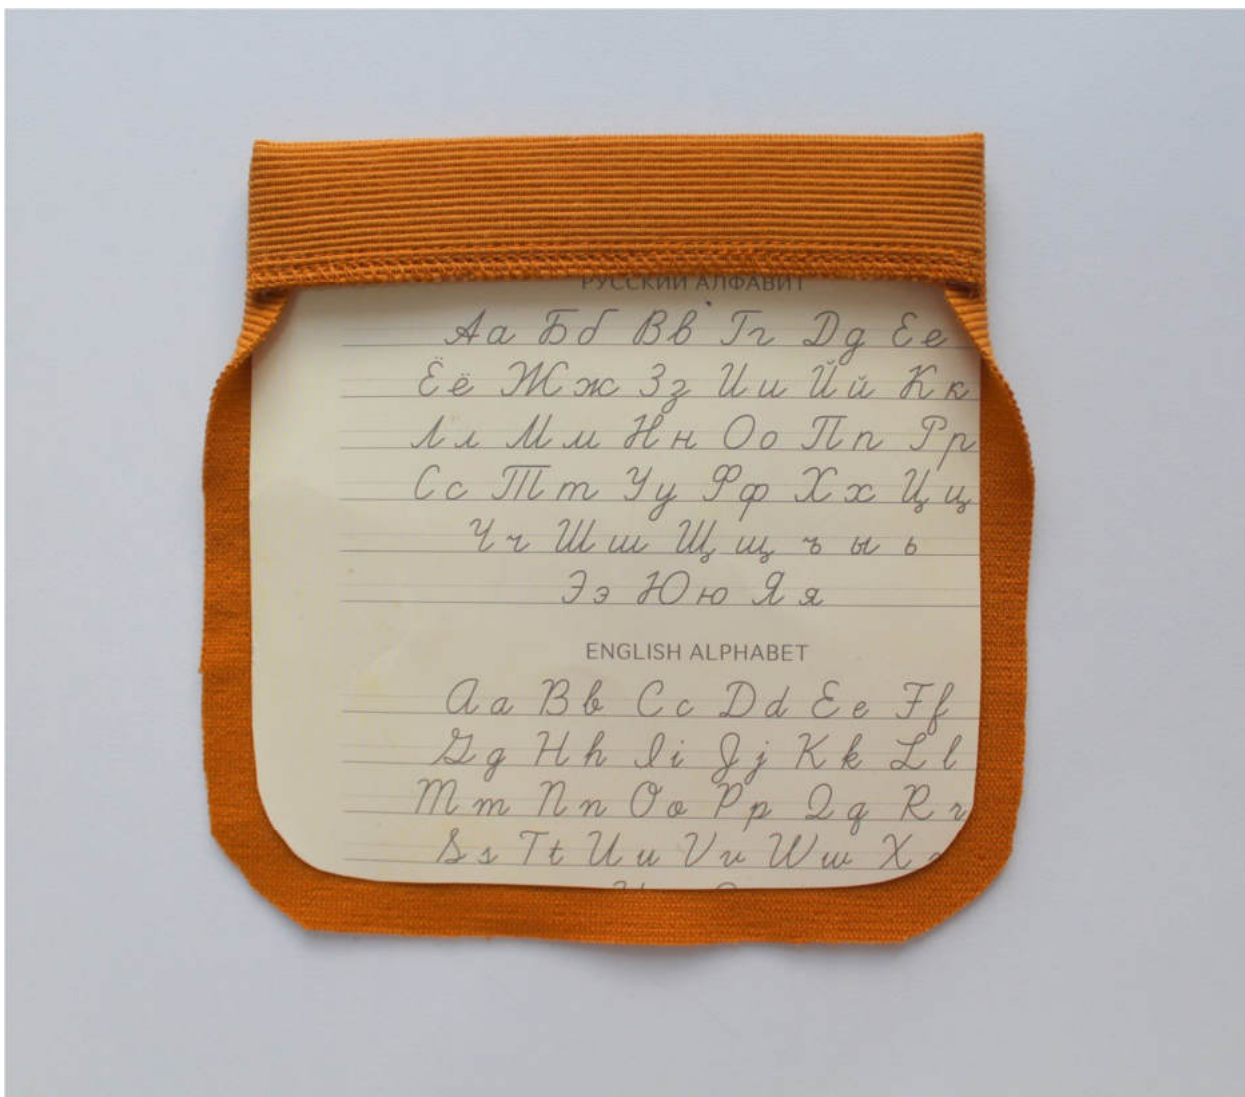 РУССКИЙ АЛФАВИТ
Аа Бб Вв Гг Дд Ее
Ёё Жж Зз Ии Йй Кк
Лл Мм Нн Оо Пп Рр
Сс Тт Уу Фф Хх Цц
Чч Шш Щщ ъ ы ь
Ээ Юю Яя
ENGLISH ALPHABET
Aa Bb Cc Dd Ee Ff
Gg Hh Ii Jj Kk Ll
Mm Nn Oo Pp Qq Rr
Ss Tt Uu Vv Ww X